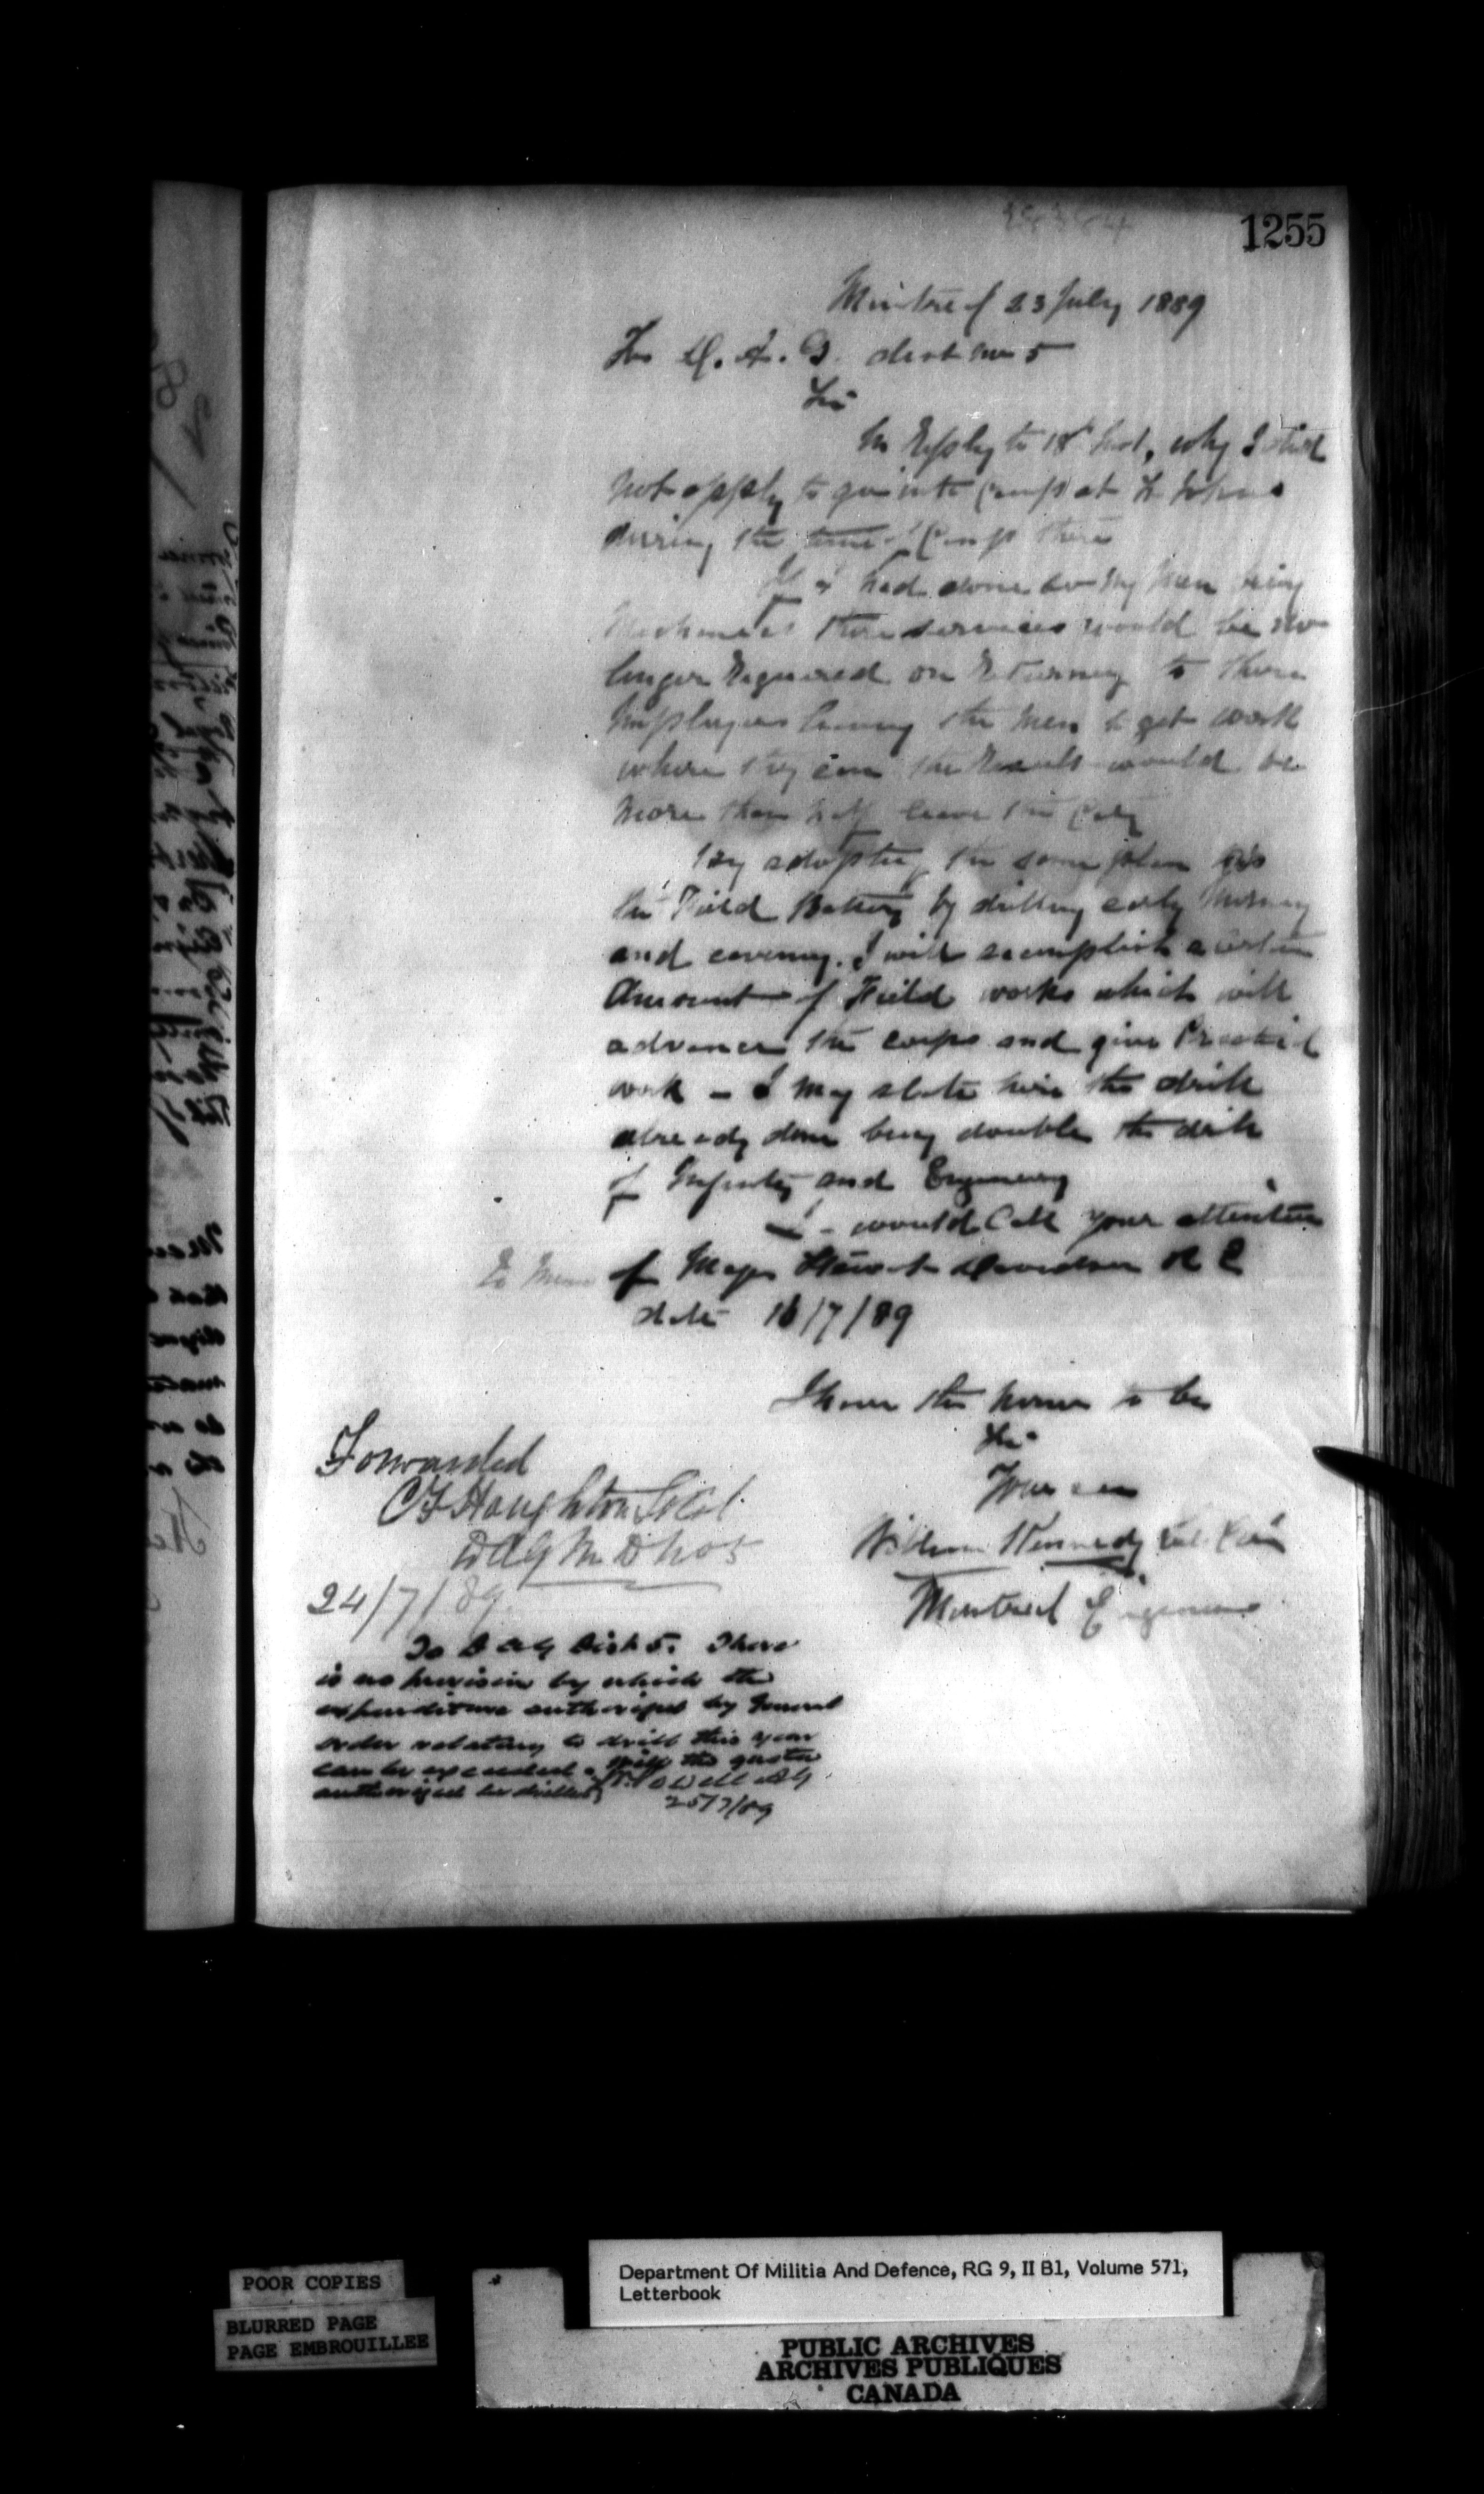 1255
Montreal 23 July 1889
To D. A. G. dist no 5
Sir
In Reply to 18th Inst, why I did
not apply to go into Camp at St Johns
during the time of Camp there
If I had done so my men being
Mechanics there services would be no
longer Required on Returning to there
Employers leaving the men to get work
where they can the Result would be
more than half leave the City
By adopting the same plan as
the Field Battery by drilling early morning
and evening. I will acomplish a certain
Amount of Field works which will
advance the corps and give Practical
work - I may state here the drill
already done being double the drill
of Infantry and Engineering
I would Call your attention
to Memo of Major Stewart Davidson R E
date 16/7/89
I have the honor to be
Sir
Your
William Kennedy
Montreal Engineers
Forwarded
C F Houghton Lt Col
DAG M D No 5
24/7/89
To D A G Dist 5. There
is no provision by which the
expenditure authorized by General
order relating to drill this year
can be exceeded. the quota
authorized be drilled Powell AG
25/7/89
POOR COPIES
BLURRED PAGE
PAGE EMBROUILLEE
Department Of Militia And Defence, RG 9, II B1, Volume 571,
Letterbook
PUBLIC ARCHIVES
ARCHIVES PUBLIQUES
CANADA